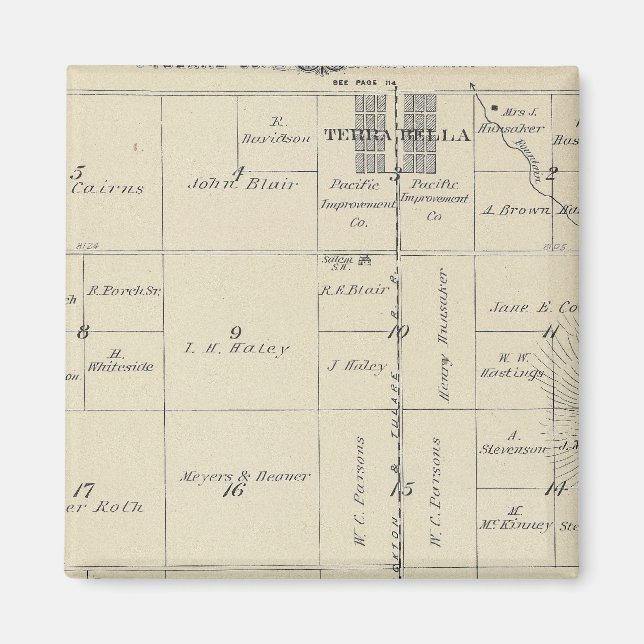 SEE PAGE 114
R.
Davidson
TERRA BELLA
Mrs J.
Hunsaker
Fountain
5
Cairns
4
John Blair
3
Pacific
Improvement
Co.
Pacific
Improvement
Co
2
A. Brown
8124
8105
Salem
S.H.
R. Porch Sr.
8
H.
Whiteside
9
I. H. Haley
R.E. Blair
10
J Haley
Henry Hunsaker
R. R.
Jane E. Co
11
W. W.
Hastings
17
er Roth
Meyers & Deaner
16
W. C. Parsons
15
W. C. Parsons
& TULARE
A.
Stevenson
J. M
14
M.
McKinney
Ste